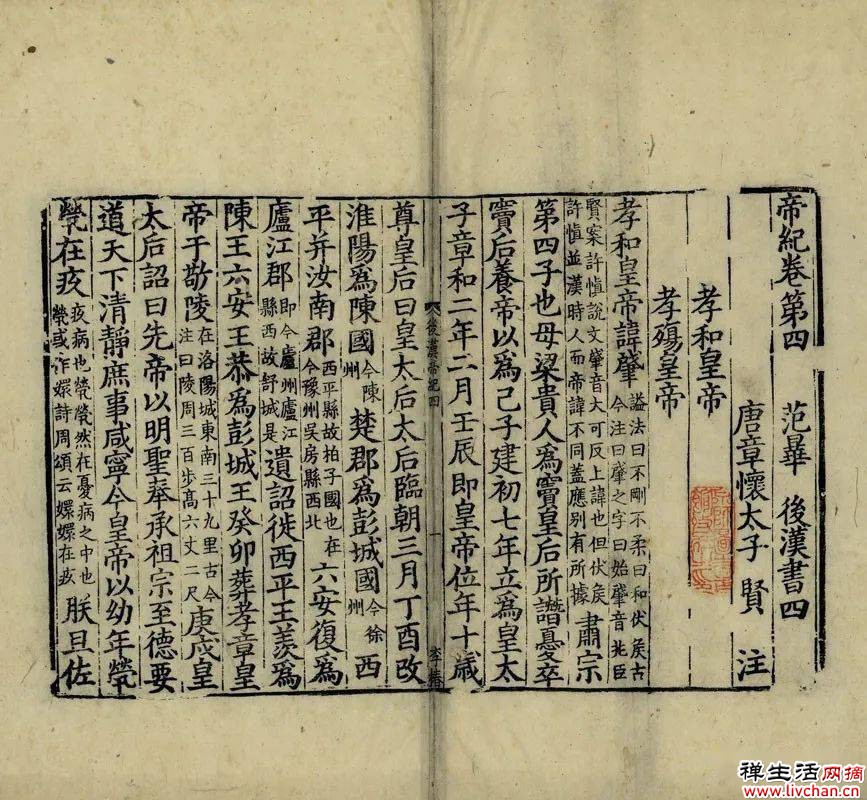 帝紀卷第四 范曄 後漢書四
唐章懷太子 賢 注
孝和皇帝
孝殤皇帝
孝和皇帝諱肇 謚法曰不剛不柔曰和伏侯古今注曰肇之字曰始肇音兆臣
賢案許慎說文肇音大可反上諱也但伏侯許慎並漢時人而帝諱不同蓋應別有所據 肅宗
第四子也母梁貴人爲竇皇后所譖憂卒
竇后養帝以爲己子建初七年立爲皇太
子章和二年二月壬辰即皇帝位年十歲
後漢帝紀四 一 李椿
尊皇后曰皇太后太后臨朝三月丁酉改
淮陽爲陳國 今陳州 楚郡爲彭城國 今徐州 西
平并汝南郡 西平縣故柏子國也在今豫州吳房縣西北 六安復爲
廬江郡 即今廬州廬江縣西故舒城是 遺詔徙西平王羨爲
陳王六安王恭爲彭城王癸卯葬孝章皇
帝于敬陵 在洛陽城東南三十九里古今注曰陵周三百步高六丈二尺 庚戌皇
太后詔曰先帝以明聖奉承祖宗至德要
道天下清靜庶事咸寧今皇帝以幼年煢
煢在疚 疚病也煢煢然在憂病之中也煢或作嬛詩周頌云嬛嬛在疚 朕且佐
禅生活网摘
www.livchan.cn